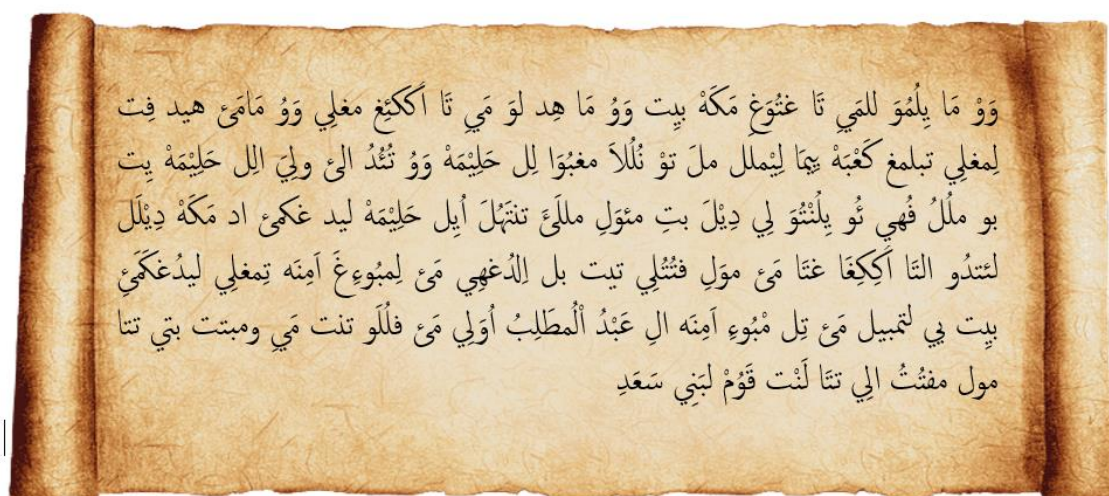 وَوْ مَا يِلُمُوَ للمَيِ تَا غتُوَغِ مَكَهْ بيِت وَوُ مَا هِد لوَ مَي تَا اَککئِغ مغلِي وَوُ مَامَئ هيد فِت
لِمغلِي تبلمغ كَعْبَهْ بِيمَا لِيْملل ملَ توْ نُلُلاَ مغبُوَا لِل حَلِيْمَهْ وَوُ تُئُدُ الئ ولِيَ اللِ حَلِيْمَهْ يِت
بو ملُلُ فُهيِ ئُو يِلُنْتُوَ لي دِيْلَ بتِ مئوَلِ مللَئَ تنتَهُلَ اُيِل حَلِيْمَهْ ليد غكمئ اد مَكَهْ دِيْلَل
لئتدُو التَا اَکِکِغَا غتَا مَئ موَلِ فتُتُلِي تيت بل اِلدُغهِي مَئ لِمبُوءِغَ اَمِنَه تِمغلِي ليدُغكَمَئِ
بيِت بي لتمبيل مَئ تِل مْبُوءِ اَمِنَه الِ عَبْدُ اْلُمطَلِبُ اُوَلِي مَئ فلُلَو تنت مَيِ ومبتت بتي تتا
مول مفتُتُ الِي تتَا لَنْت قَوُمْ لبَنِي سَعَدِ